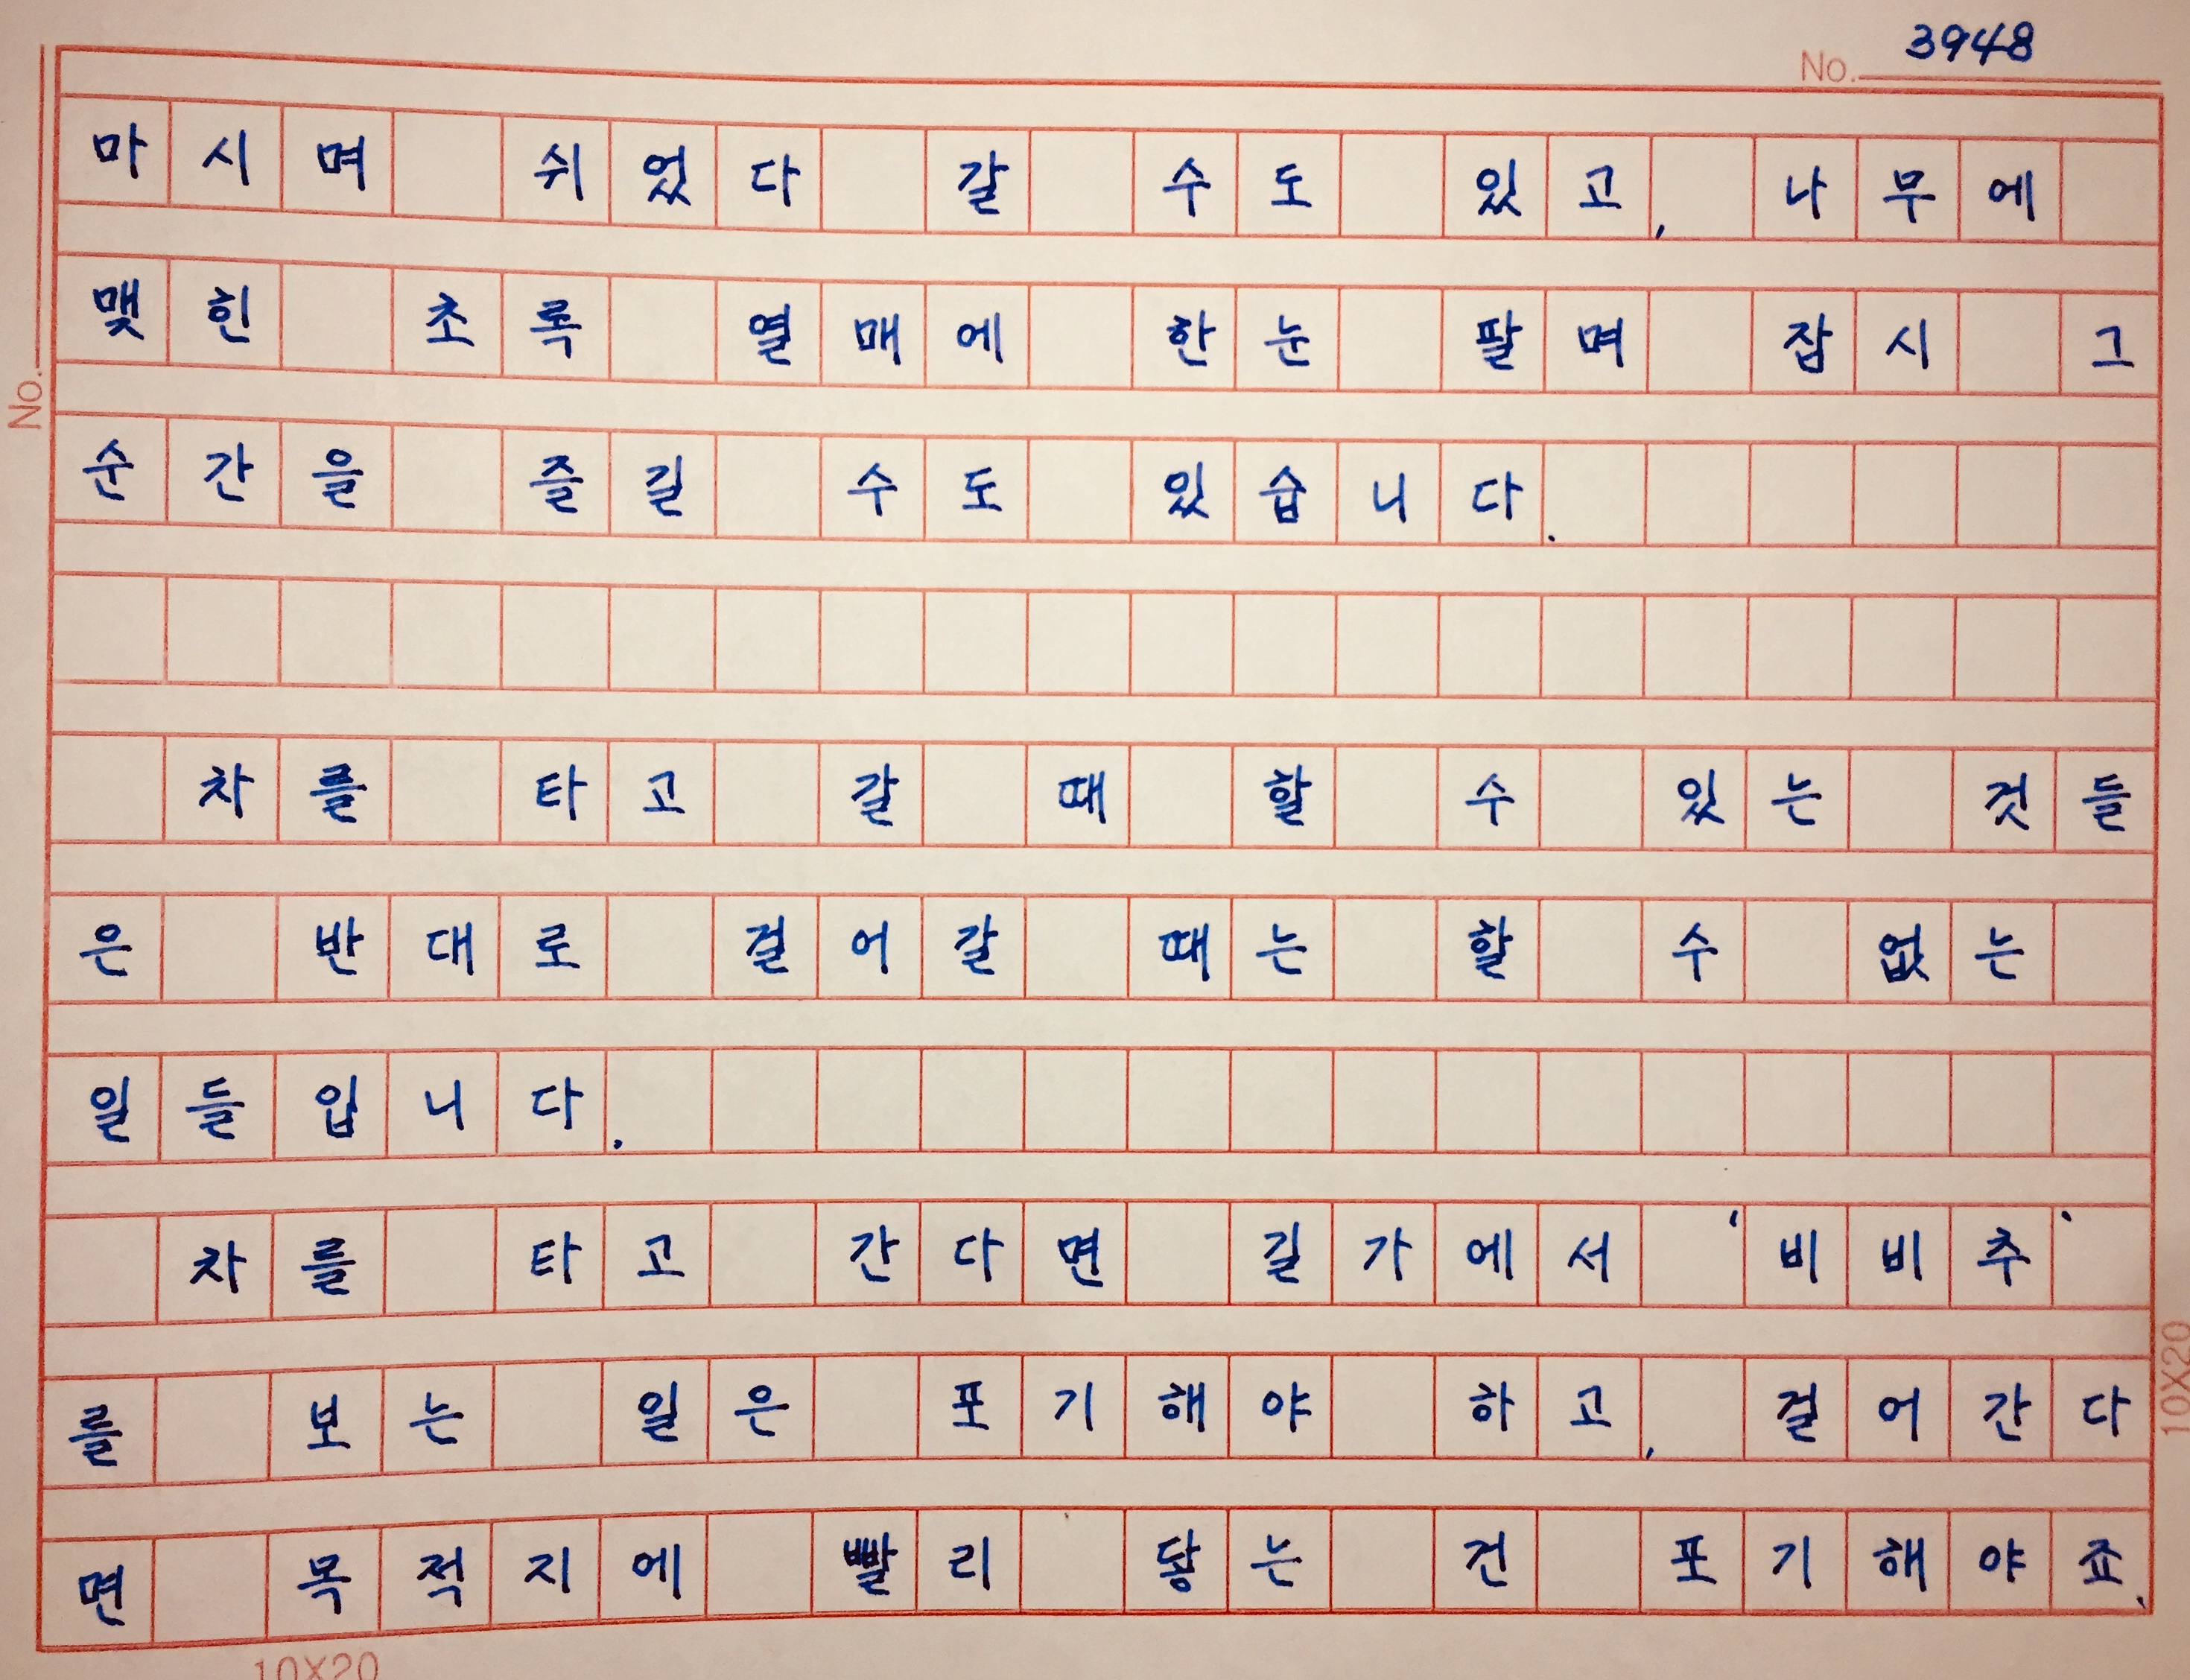 No. 3948
마시며 쉬었다 갈 수도 있고, 나무에
맺힌 초록 열매에 한눈 팔며 잠시 그
순간을 즐길 수도 있습니다.
차를 타고 갈 때 할 수 있는 것들
은 반대로 걸어갈 때는 할 수 없는
일들입니다.
차를 타고 간다면 길가에서 '비비추'
를 보는 일은 포기해야 하고, 걸어간다
면 목적지에 빨리 닿는 건 포기해야죠.
No.
10X20
10X20